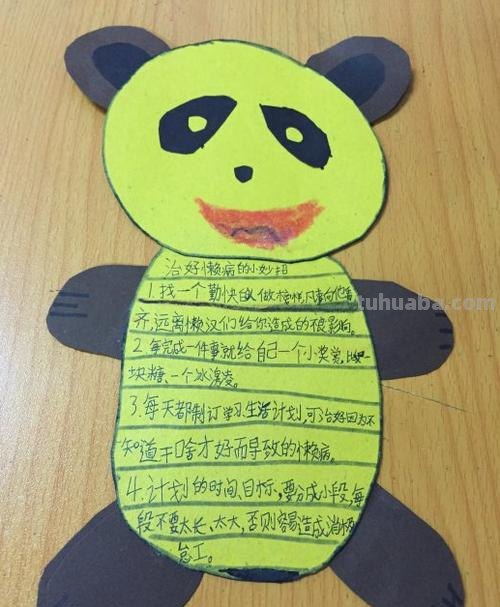 治好懒病的小妙招
1.找一个勤快的人做榜样,凡事向他看
齐,远离懒汉们给你造成的不良影响。
2.每完成一件事就给自己一个小奖赏,比如一
块糖、一个冰激凌。
3.每天都制订学习生活计划,可治好因为不
知道干啥才好而导致的懒病。
4.计划的时间、目标,要分成小段,每
段不要太长、太大,否则容易造成消极
怠工。
tuhuaba.com